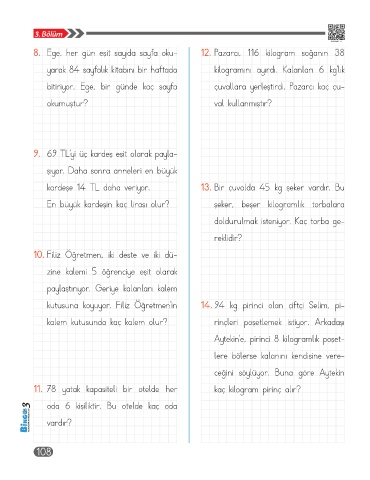 3. Bölüm
8. Ege, her gün eşit sayıda sayfa oku-
yarak 84 sayfalık kitabını bir haftada
bitiriyor. Ege, bir günde kaç sayfa
okumuştur?
9. 69 TL'yi üç kardeş eşit olarak payla-
şıyor. Daha sonra anneleri en büyük
kardeşe 14 TL daha veriyor.
En büyük kardeşin kaç lirası olur?
10. Filiz Öğretmen, iki deste ve iki dü-
zine kalemi 5 öğrenciye eşit olarak
paylaştırıyor. Geriye kalanları kalem
kutusuna koyuyor. Filiz Öğretmen'in
kalem kutusunda kaç kalem olur?
11. 78 yatak kapasiteli bir otelde her
oda 6 kişiliktir. Bu otelde kaç oda
vardır?
12. Pazarcı, 116 kilogram soğanın 38
kilogramını ayırdı. Kalanları 6 kg'lık
çuvallara yerleştirdi. Pazarcı kaç çu-
val kullanmıştır?
13. Bir çuvalda 45 kg şeker vardır. Bu
şeker, beşer kilogramlık torbalara
doldurulmak isteniyor. Kaç torba ge-
reklidir?
14. 94 kg pirinci olan çiftçi Selim, pi-
rinçleri poşetlemek istiyor. Arkadaşı
Aytekin'e, pirinci 8 kilogramlık poşet-
lere bölerse kalanını kendisine vere-
ceğini söylüyor. Buna göre Aytekin
kaç kilogram pirinç alır?
BİNGO 3
108